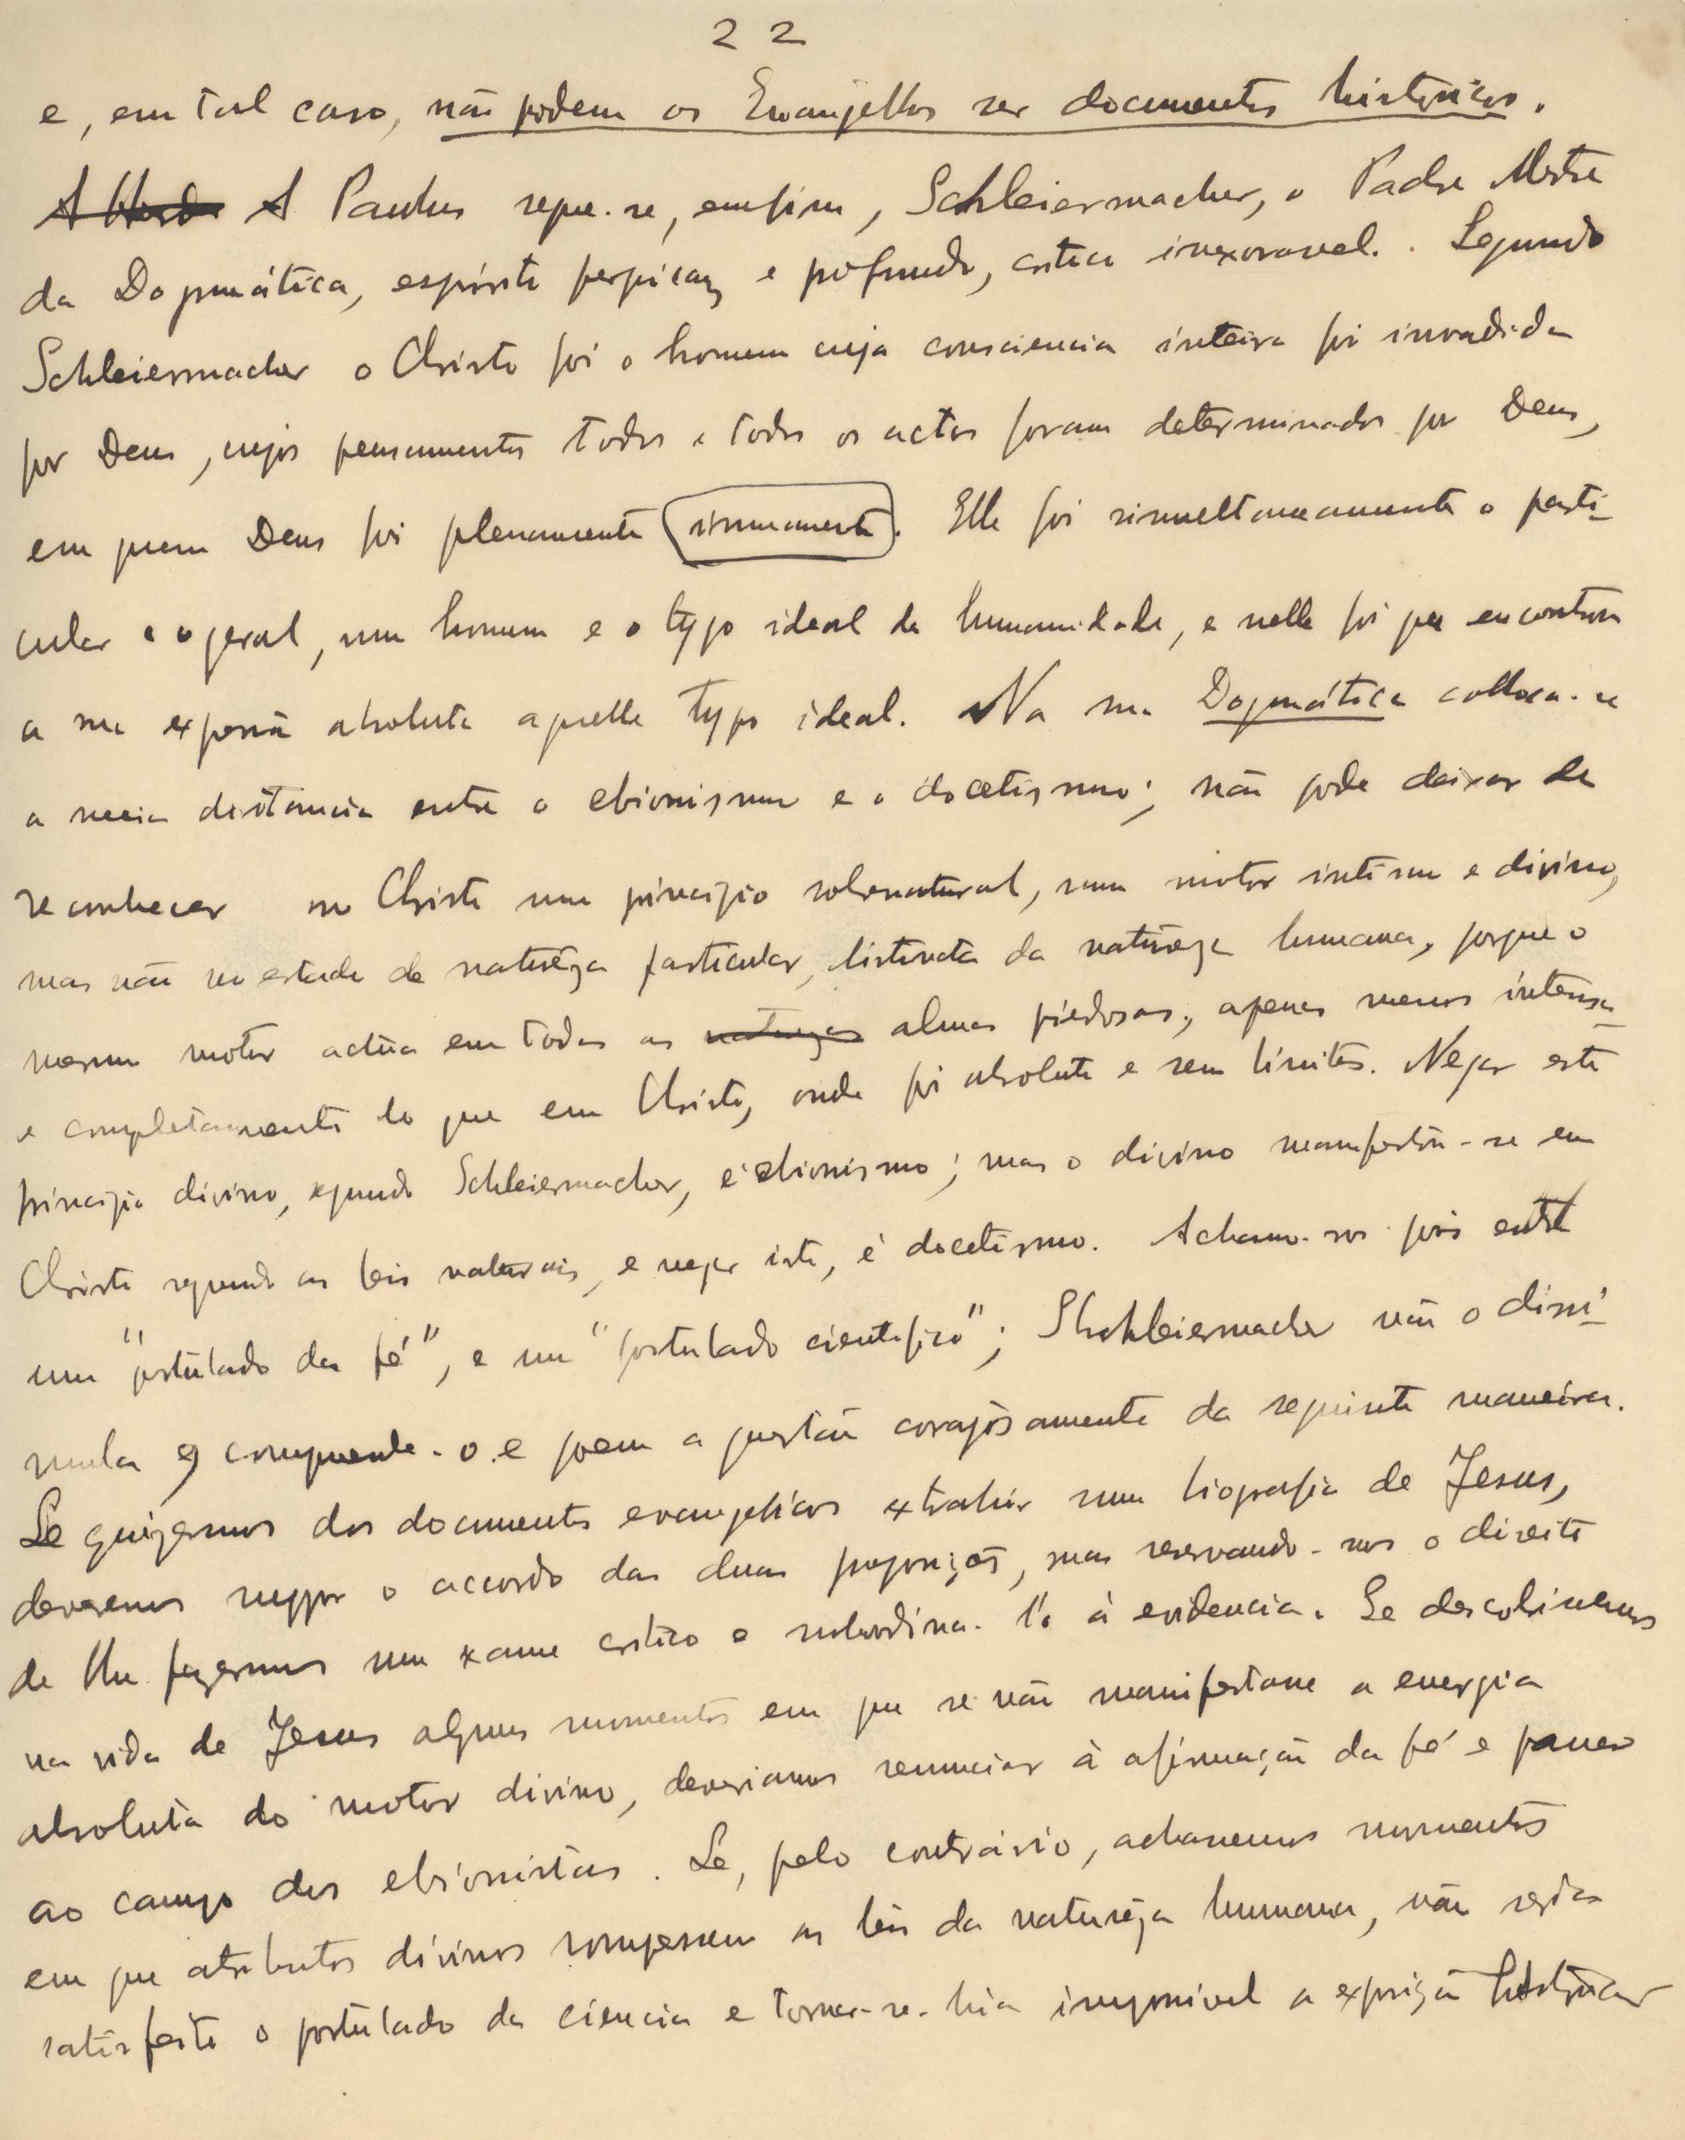 22
e, em tal caso, não podem os Evangelhos ser documentos históricos.
A Paulus segue-se, emfim, Schleiermacher, o Padre Mestre
da Dogmática, espírito perspicaz e profundo, critico inexoravel. Segundo
Schleiermacher o Christo foi o homem cuja consciencia inteira foi invadida
por Deus, cujos pensamentos todos e todos os actos foram determinados por Deus,
em quem Deus foi plenamente immanente. Elle foi simultaneamente o parti-
cular e o geral, um homem e o typo ideal da humanidade, e nelle foi que encontrou
a sua expressão absoluta aquelle typo ideal. Na sua Dogmática colloca-se
a meia distância entre o ebionismo e o docetismo; não pode deixar de
reconhecer no Christo um principio sobrenatural, um motor intimo e divino,
mas não no estado de naturêza particular, distincta da naturêza humana, porque o
mesmo motor actúa em todas as naturezas almas piedosas, apenas menos intensa
e completamente do que em Christo, onde foi absoluto e sem limites. Negar este
principio divino, segundo Schleiermacher, é ebionismo; mas o divino manifestou-se em
Christo segundo as leis naturais, e negar isto, é docetismo. Achamo-nos pois entre
um "postulado da fé", e um "postulado cientifico"; Shchleiermacher não o dissi-
mula e comprende-o e poem a questão corajosamente da seguinte maneira.
Se quizermos dos documentos evangelicos extrahir uma biografia de Jesus,
deveremos suppor o accordo das duas proposições, mas reservando-nos o direito
de lhe fazermos um exame critico e subordiná-l'o à evidencia. Se descobrissemos
na vida de Jesus alguns momentos em que se não manifestasse a energia
absoluta do motor divino, deveriamos renunciar à afirmação da fé e passar
ao campo dos ebionistas. Se, pelo contrário, achassemos momentos
em que atributos divinos rompessem as leis da naturêza humana, não seria
satisfeito o postulado da ciencia e tornar-se-hia impossivel a exposição histórica